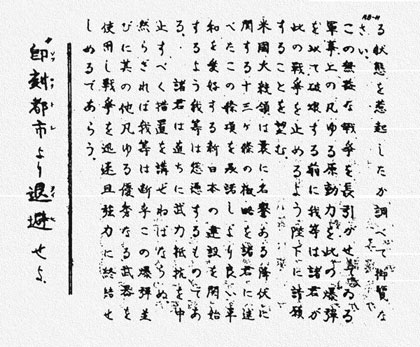 AB-11
る状態を惹起したか調べて御覧な
さい。
この無益な戦争を長引かせてゐる
軍事上の凡ゆる原動力を此の爆弾
を以て破壊する前に我等は諸君が
此の戦争を止めるよう陛下に請願
することを望む。
米国大統領は曩に名誉ある降伏に
関する十三ヶ條の概略を諸君に述
べたこの條項を承認しより良い平
和を愛好する新日本の建設を開始
するよう我等は慫慂するものであ
る。諸君は直ちに武力抵抗を中
止すべく措置を講ぜねばならぬ
然らざれば我等は断乎この爆弾並
びに其の他凡ゆる優秀なる武器を
使用し戦争を迅速且強力に終結せ
しめるであらう。
“即刻都市より退避せよ”